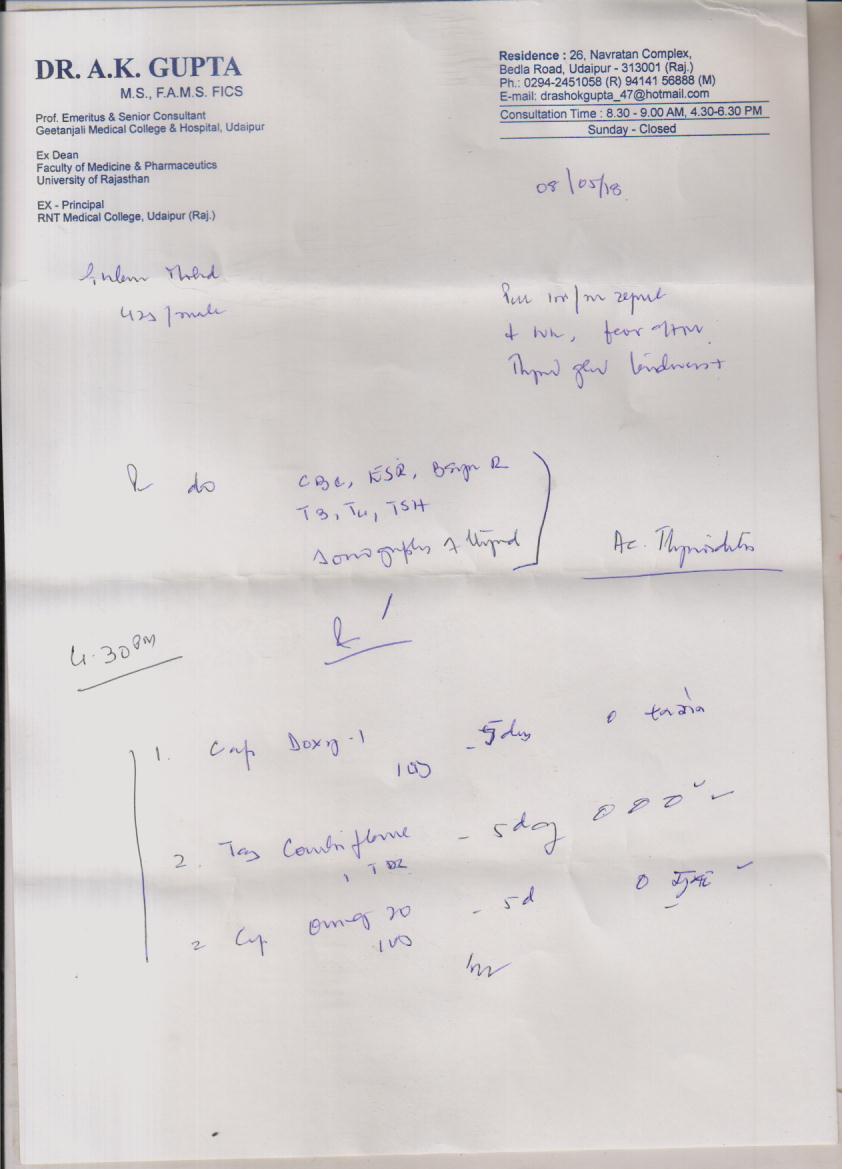 DR. A.K. GUPTA
M.S., F.A.M.S. FICS
Prof. Emeritus & Senior Consultant
Geetanjali Medical College & Hospital, Udaipur
Ex Dean
Faculty of Medicine & Pharmaceutics
University of Rajasthan
EX - Principal
RNT Medical College, Udaipur (Raj.)
Residence : 26, Navratan Complex,
Bedla Road, Udaipur - 313001 (Raj.)
Ph.: 0294-2451058 (R) 94141 56888 (M)
E-mail: drashokgupta_47@hotmail.com
Consultation Time : 8.30 - 9.00 AM, 4.30-6.30 PM
Sunday - Closed
08/05/18
Mohd
42y/male
Thyroid gland tenderness +
R do
CBC, ESR,
T3, T4, TSH
Sonography of thyroid
Ac. Thyroiditis
4.30 PM
R
1. Cap Doxy-1 - 5 days 0
2. Tab Combiflame - 5 day 0 0 0
TDS
Cap Omeg 20 - 5d 0